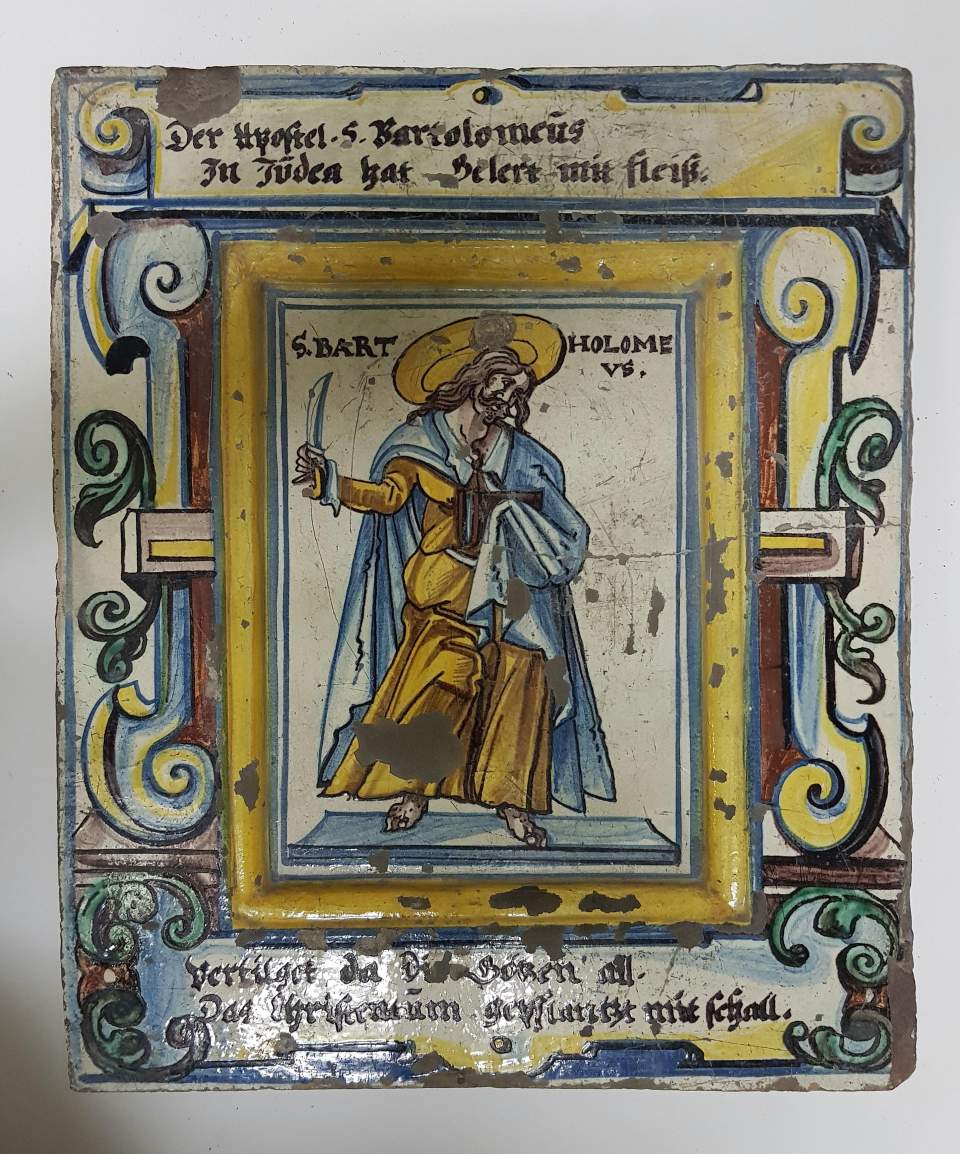 Der Apostel. S. Bartolomeůs
In Jůdea hat Gelert mit fleiß.
S. BART HOLOME
VS.
Vertilget da Die Götzen all.
Das Christentům gepflantzt mit schall.